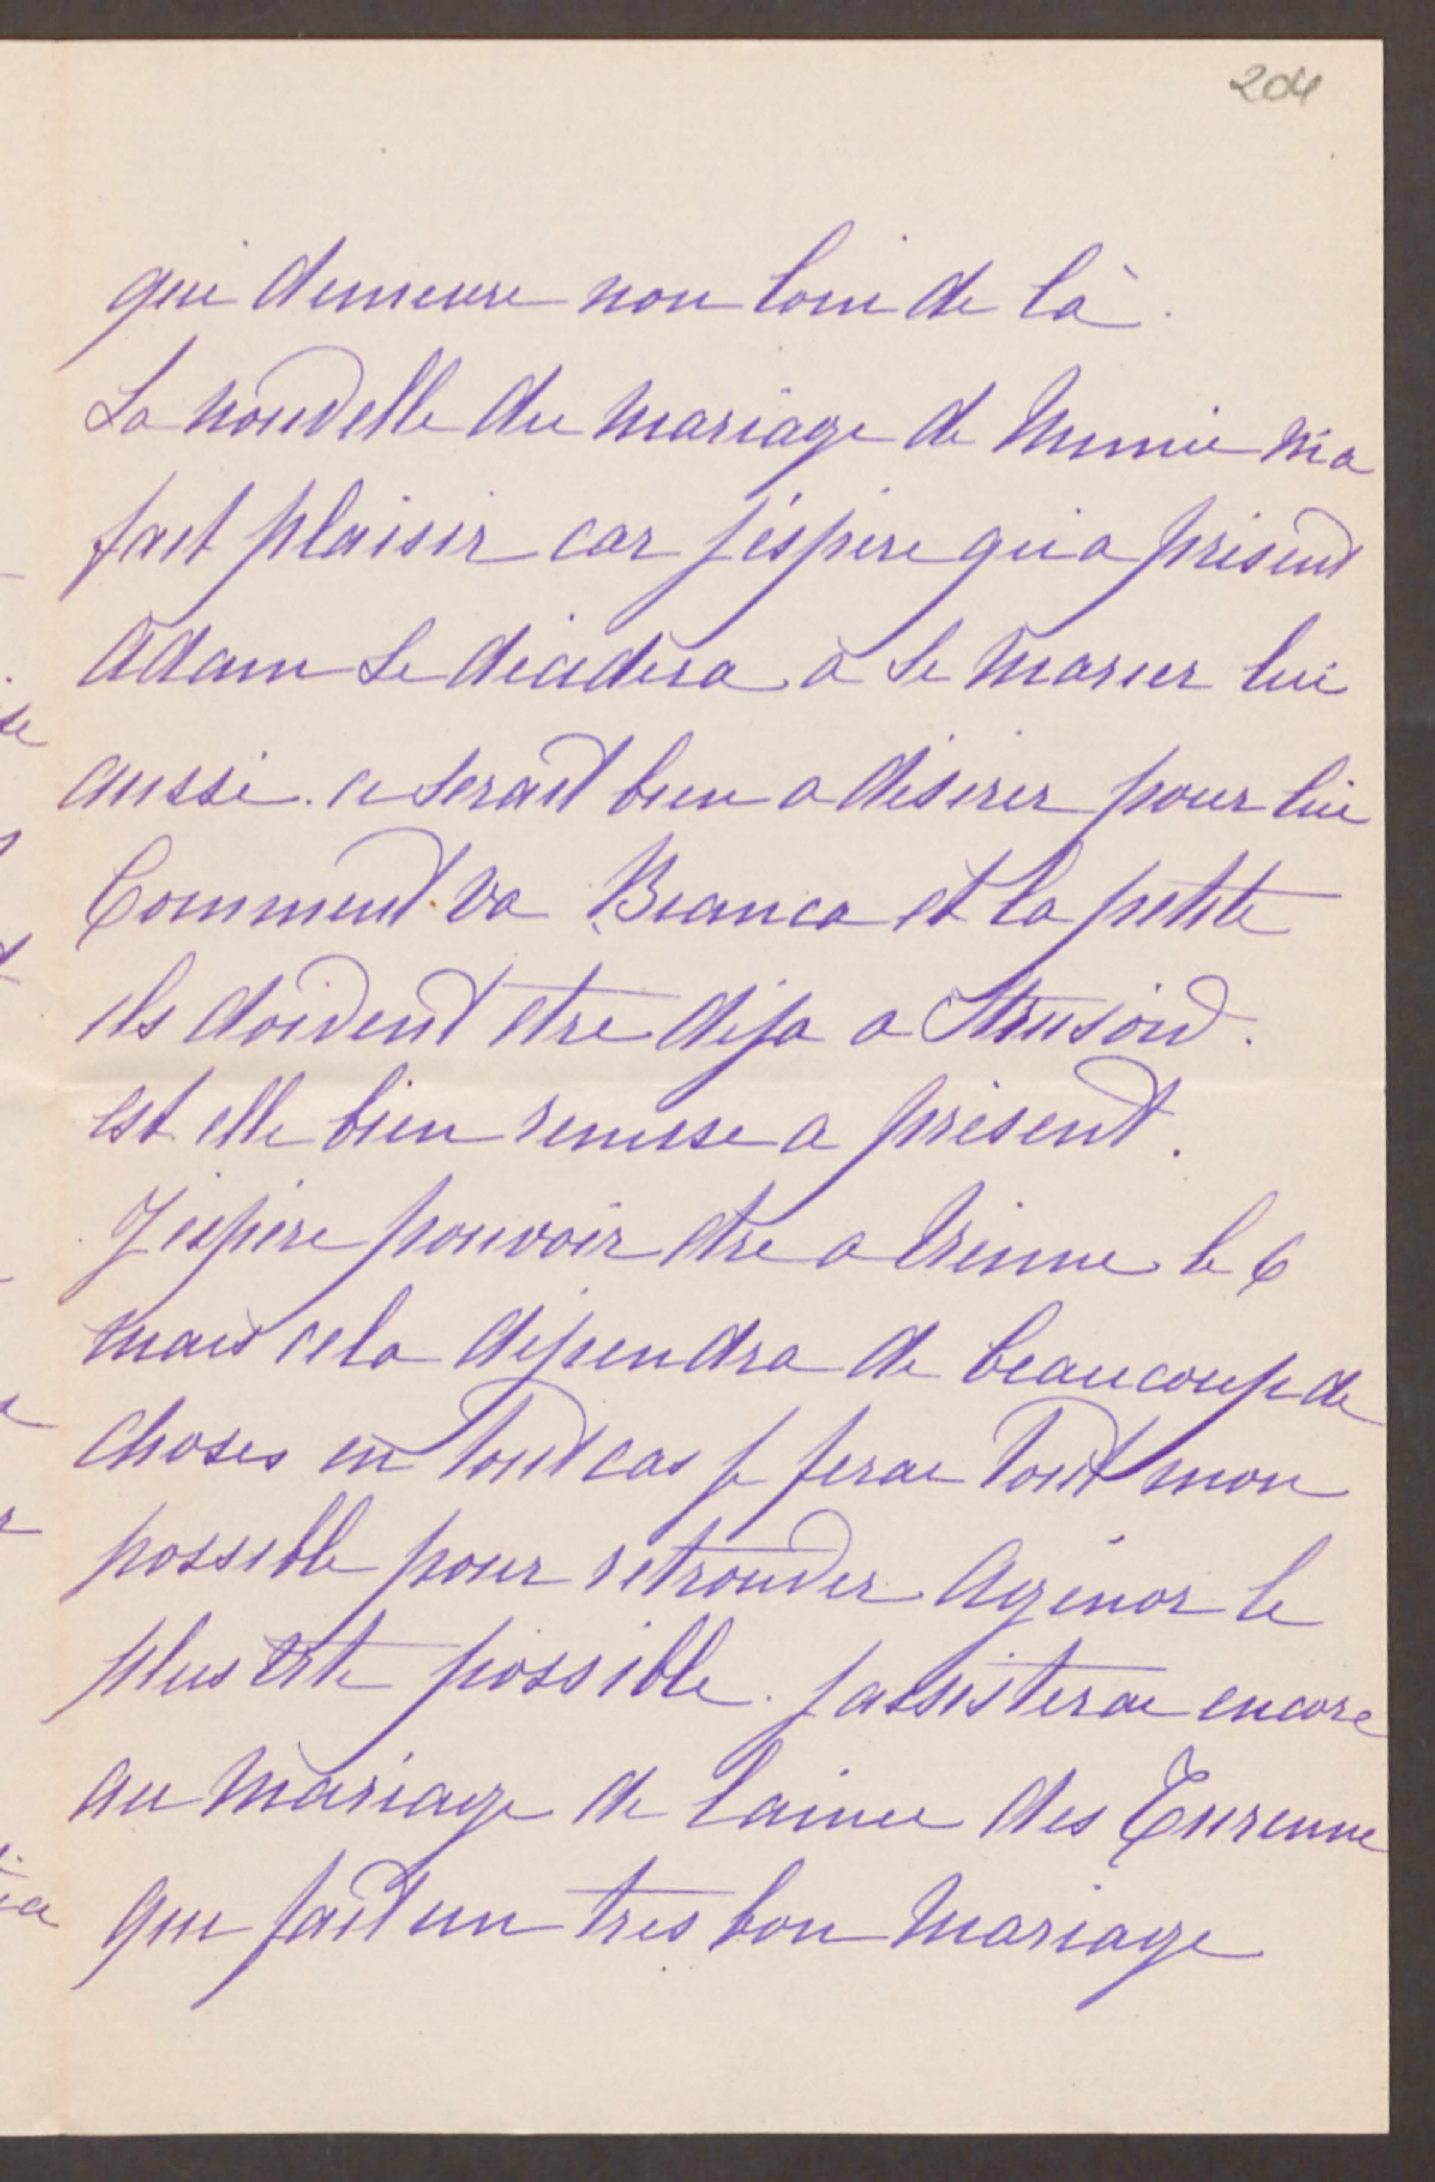 204
qui demeure non loin de là.
La nouvelle du mariage de Mimie m'a
fait plaisir car j'éspère qu'a présent
Adam se décidera à se marier lui
aussi. ce serait bien a désirer pour lui
Comment va Bianca et la petite
ils doivent etre déja a Strusów.
est elle bien remise a présent.
J'éspère pouvoir etre a Vienne le 6
mais cela dépendra de beaucoup de
choses en tout cas je ferai tout mon
possible pour retrouver Agénor le
plus vite possible. j'assisterai encore
au mariage de l'ainée des Turenne
qui fait un tres bon mariage